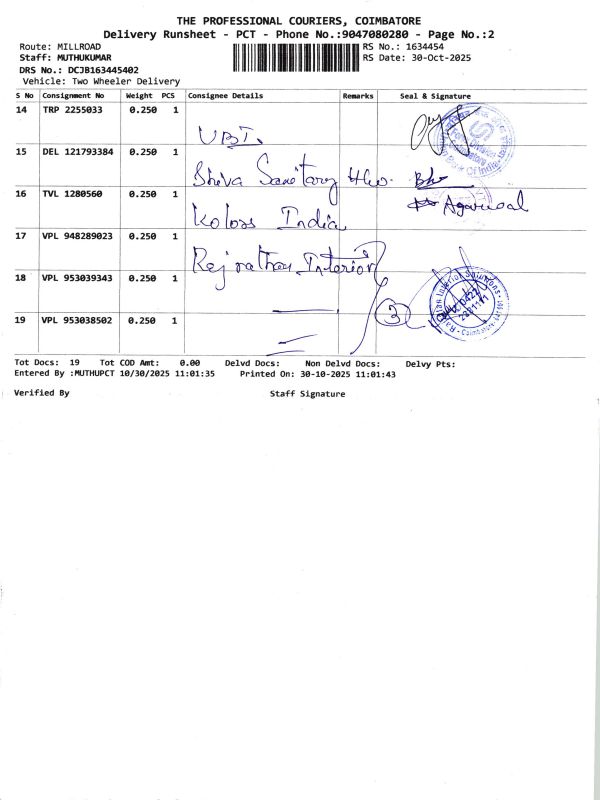 THE PROFESSIONAL COURIERS, COIMBATORE
Delivery Runsheet - PCT - Phone No.:9047080280 - Page No.:2
Route: MILLROAD RS No.: 1634454
Staff: MUTHUKUMAR RS Date: 30-Oct-2025
DRS No.: DCJB163445402
Vehicle: Two Wheeler Delivery
S No Consignment No Weight PCS Consignee Details Remarks Seal & Signature
14 TRP 2255033 0.250 1 UBI.
15 DEL 121793384 0.250 1 Shiva Sanitary
16 TVL 1280560 0.250 1 Koloss India Agarwal
17 VPL 948289023 0.250 1 Interior
18 VPL 953039343 0.250 1
19 VPL 953038502 0.250 1 3
Tot Docs: 19 Tot COD Amt: 0.00 Delvd Docs: Non Delvd Docs: Delvy Pts:
Entered By :MUTHUPCT 10/30/2025 11:01:35 Printed On: 30-10-2025 11:01:43
Verified By Staff Signature